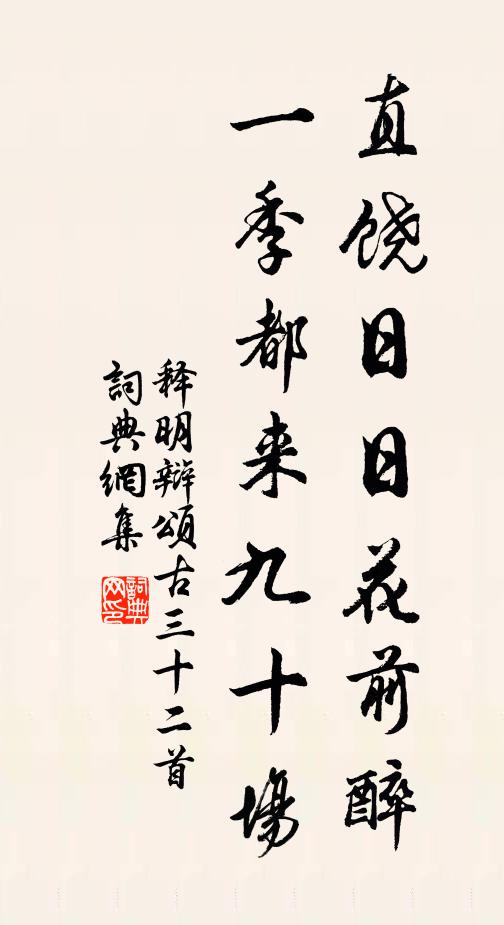 直饶日日花前醉
一季都来九十场
释明辩颂古三十二首
词典网集
詞典
网印